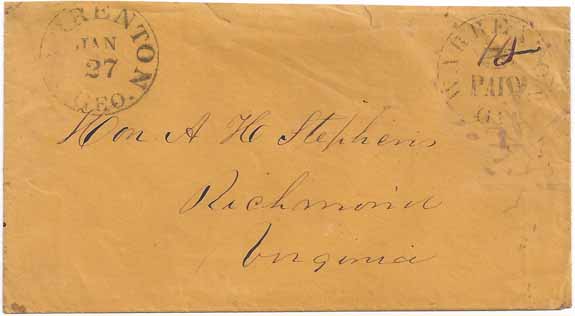 RRENTON
JAN
27
GEO.
WARRE
PAID
Hon A H Stephens
Richmond
Virginia